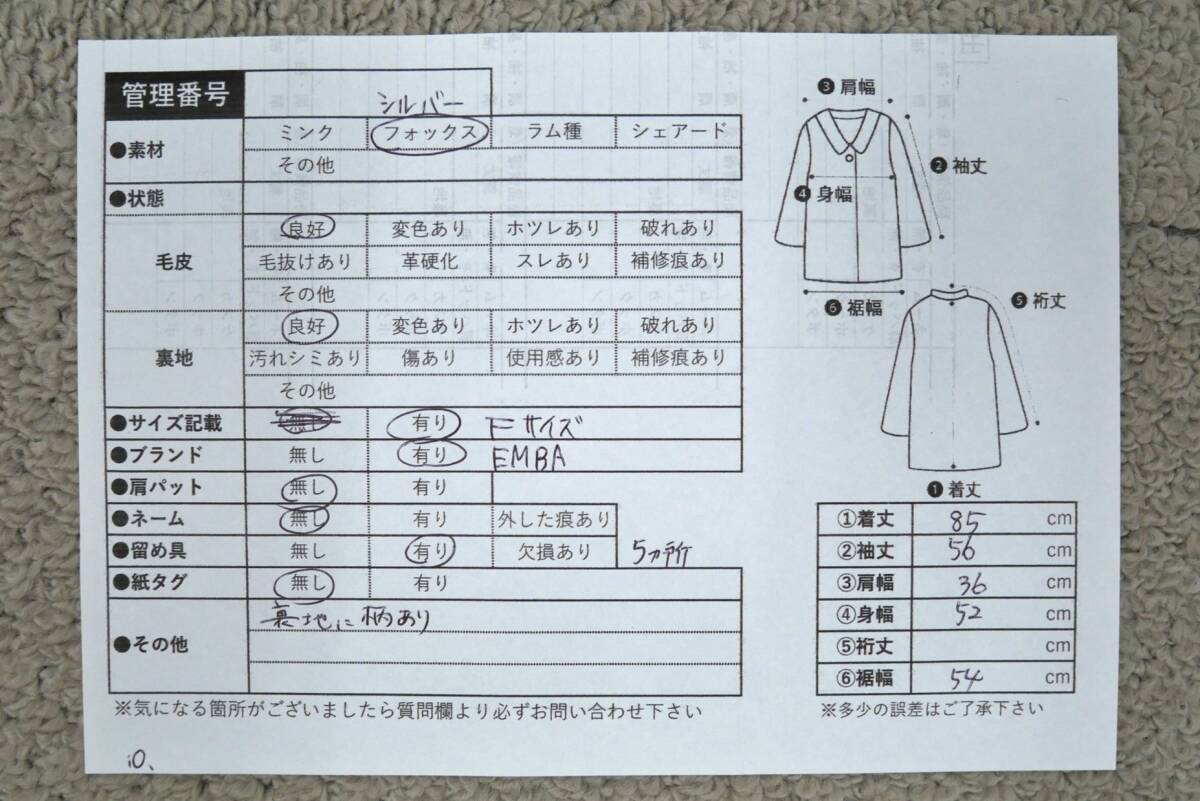 管理番号
シルバー
●素材 ミンク フォックス ラム種 シェアード
その他
●状態
毛皮 良好 変色あり ホツレあり 破れあり
毛抜けあり 革硬化 スレあり 補修痕あり
その他
裏地 良好 変色あり ホツレあり 破れあり
汚れシミあり 傷あり 使用感あり 補修痕あり
その他
●サイズ記載 無し 有り Fサイズ
●ブランド 無し 有り EMBA
●肩パット 無し 有り
●ネーム 無し 有り 外した痕あり
●留め具 無し 有り 欠損あり 5ヵ所
●紙タグ 無し 有り
●その他 裏地に柄あり
※気になる箇所がございましたら質問欄より必ずお問い合わせ下さい
10、
❸ 肩幅
❷ 袖丈
❹ 身幅
❻ 裾幅
❺ 裄丈
❶ 着丈
①着丈 85 cm
②袖丈 56 cm
③肩幅 36 cm
④身幅 52 cm
⑤裄丈 cm
⑥裾幅 54 cm
※多少の誤差はご了承下さい